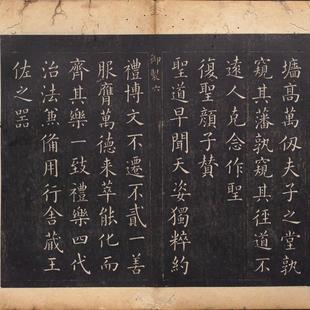 墻高萬仭夫子之堂孰
窺其藩孰窺其徑道不
遠人克念作聖
復聖顔子賛
聖道早聞天姿獨粹約
御製六
禮博文不遷不貳一善
服膺萬德来萃能化而
齊其樂一致禮樂四代
治法兼備用行舎蔵王
佐之器